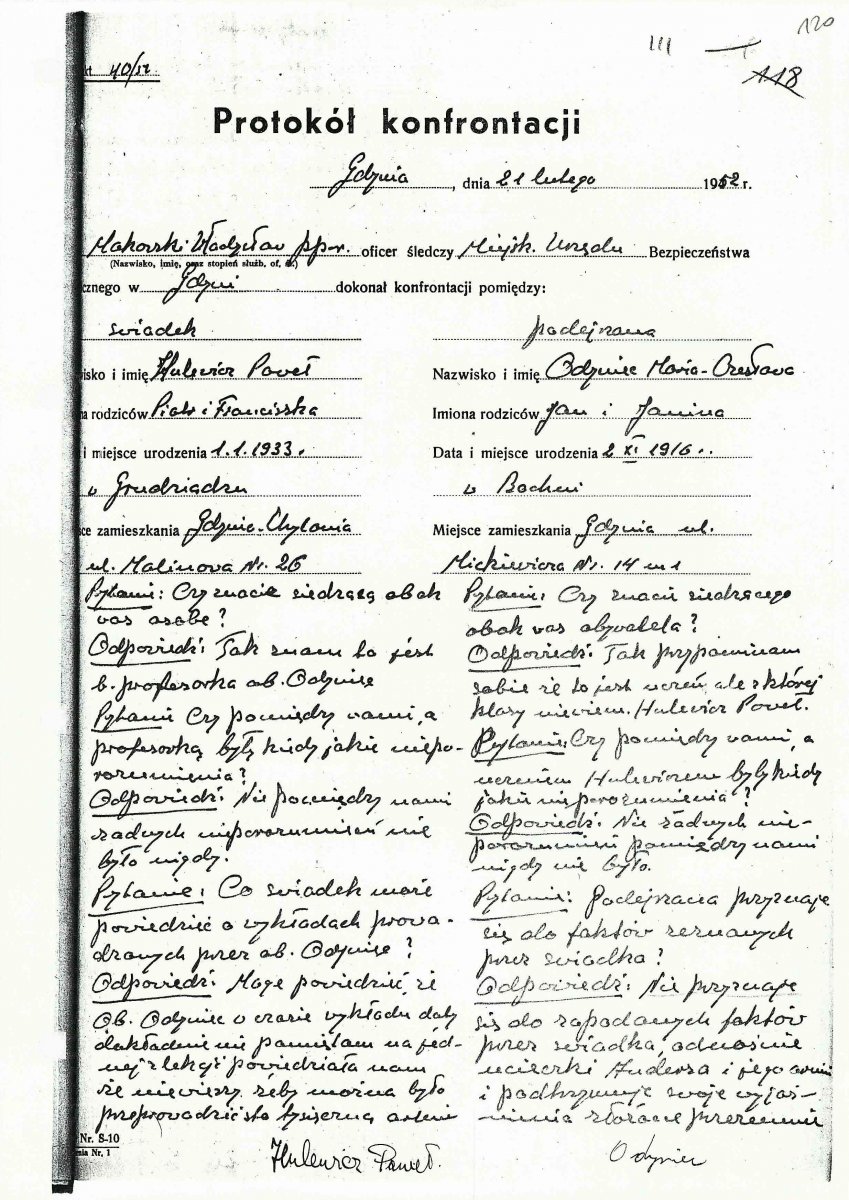 120
III
118
kt 40/52
Protokół konfrontacji
Gdynia, dnia 21 lutego 1952 r.
Makowski Władysław ppor. oficer śledczy Miejsk. Urzędu Bezpieczeństwa
(Nazwisko, imię, oraz stopień służb. of. śl.)
cznego w Gdyni dokonał konfrontacji pomiędzy:
świadek
isko i imię Hulewicz Paweł
na rodziców Piotr i Franciszka
i miejsce urodzenia 1.1.1933.
w Grudziądzu
sce zamieszkania Gdynia-Chylonia
ul. Malinowa Nr. 26
Pytanie: Czy znacie siedzącą obok
was osobę?
Odpowiedź: Tak znam to jest
b. profesorka ob. Odyniec
Pytanie Czy pomiędzy wami, a
profesorką były kiedy jakie niepo-
rozumienia?
Odpowiedź: Nie pomiędzy nami
żadnych nieporozumień nie
było nigdy.
Pytanie: Co świadek może
powiedzieć o wykładach prowa-
dzonych przez ob. Odyniec?
Odpowiedź: Mogę powiedzieć, że
Ob. Odyniec w czasie wykładu daty
dokładnie nie pamiętam na jed-
nej z lekcji powiedziała nam
że nie wierzy żeby można było
przeprowadzić sto tysięczną armię
Nr. S-10
nia Nr. 1
Hulewicz Paweł.
podejrzana
Nazwisko i imię Odyniec Maria-Czesława
Imiona rodziców Jan i Janina
Data i miejsce urodzenia 2 XI 1916..
w Bochni
Miejsce zamieszkania Gdynia ul.
Mickiewicza Nr. 14 m 1
Pytanie: Czy znacie siedzącego
obok was obywatela?
Odpowiedź: Tak przypominam
sobie że to jest uczeń ale z której
klasy nie wiem. Hulewicz Paweł.
Pytanie: Czy pomiędzy wami, a
uczniem Hulewiczem były kiedy
jakie nieporozumienia?
Odpowiedź: Nie żadnych nie-
porozumień pomiędzy nami
nigdy nie było.
Pytanie: Podejrzana przyznaje
się do faktów zeznanych
przez świadka?
Odpowiedź: Nie przyznaje
się do zapodanych faktów
przez świadka, odnośnie
ucieczki Andersa i jego armii
i podtrzymuje swoje wyjaś-
nienia złożone przezemnie
Odyniec